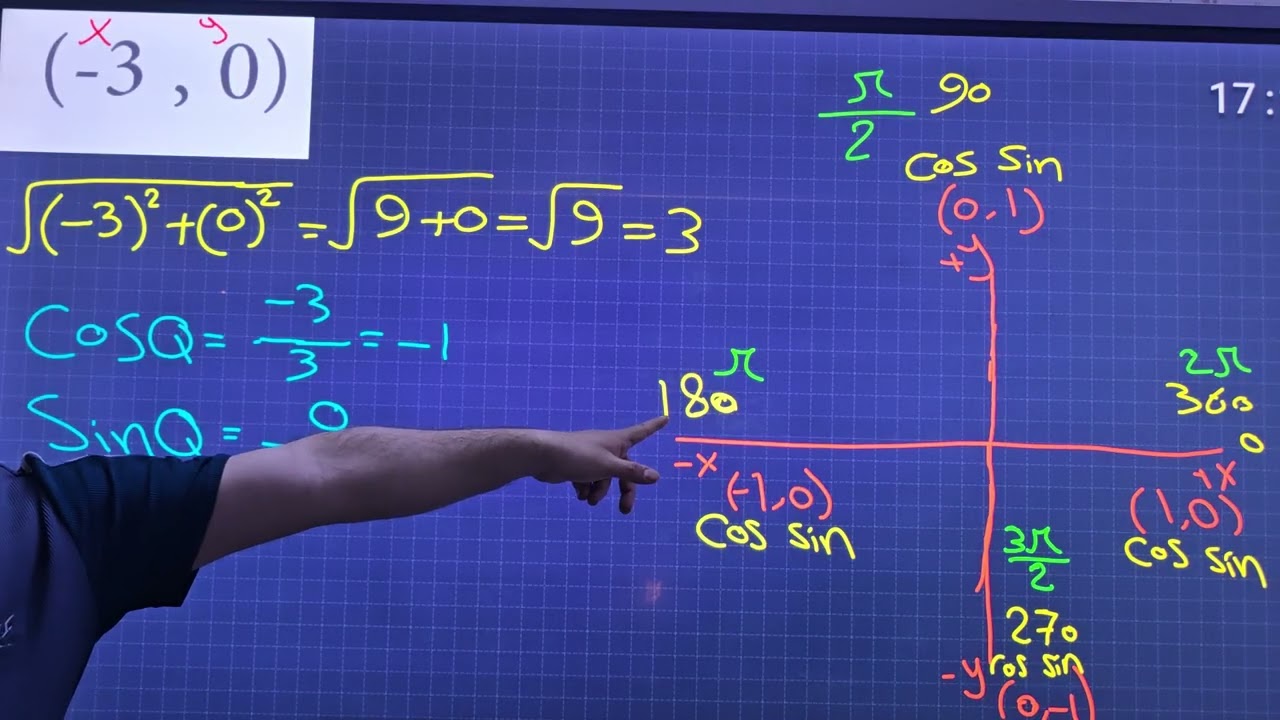 x y
(-3 , 0)
17:
√(-3)²+(0)² = √9+0 = √9 = 3
CosQ = -3/3 = -1
SinQ = 0
π/2 90
cos sin
(0,1)
+y
π
180
-x
(-1,0)
Cos sin
2π
360
0
+x
(1,0)
cos sin
3π/2
270
cos sin
-y
(0,-1)